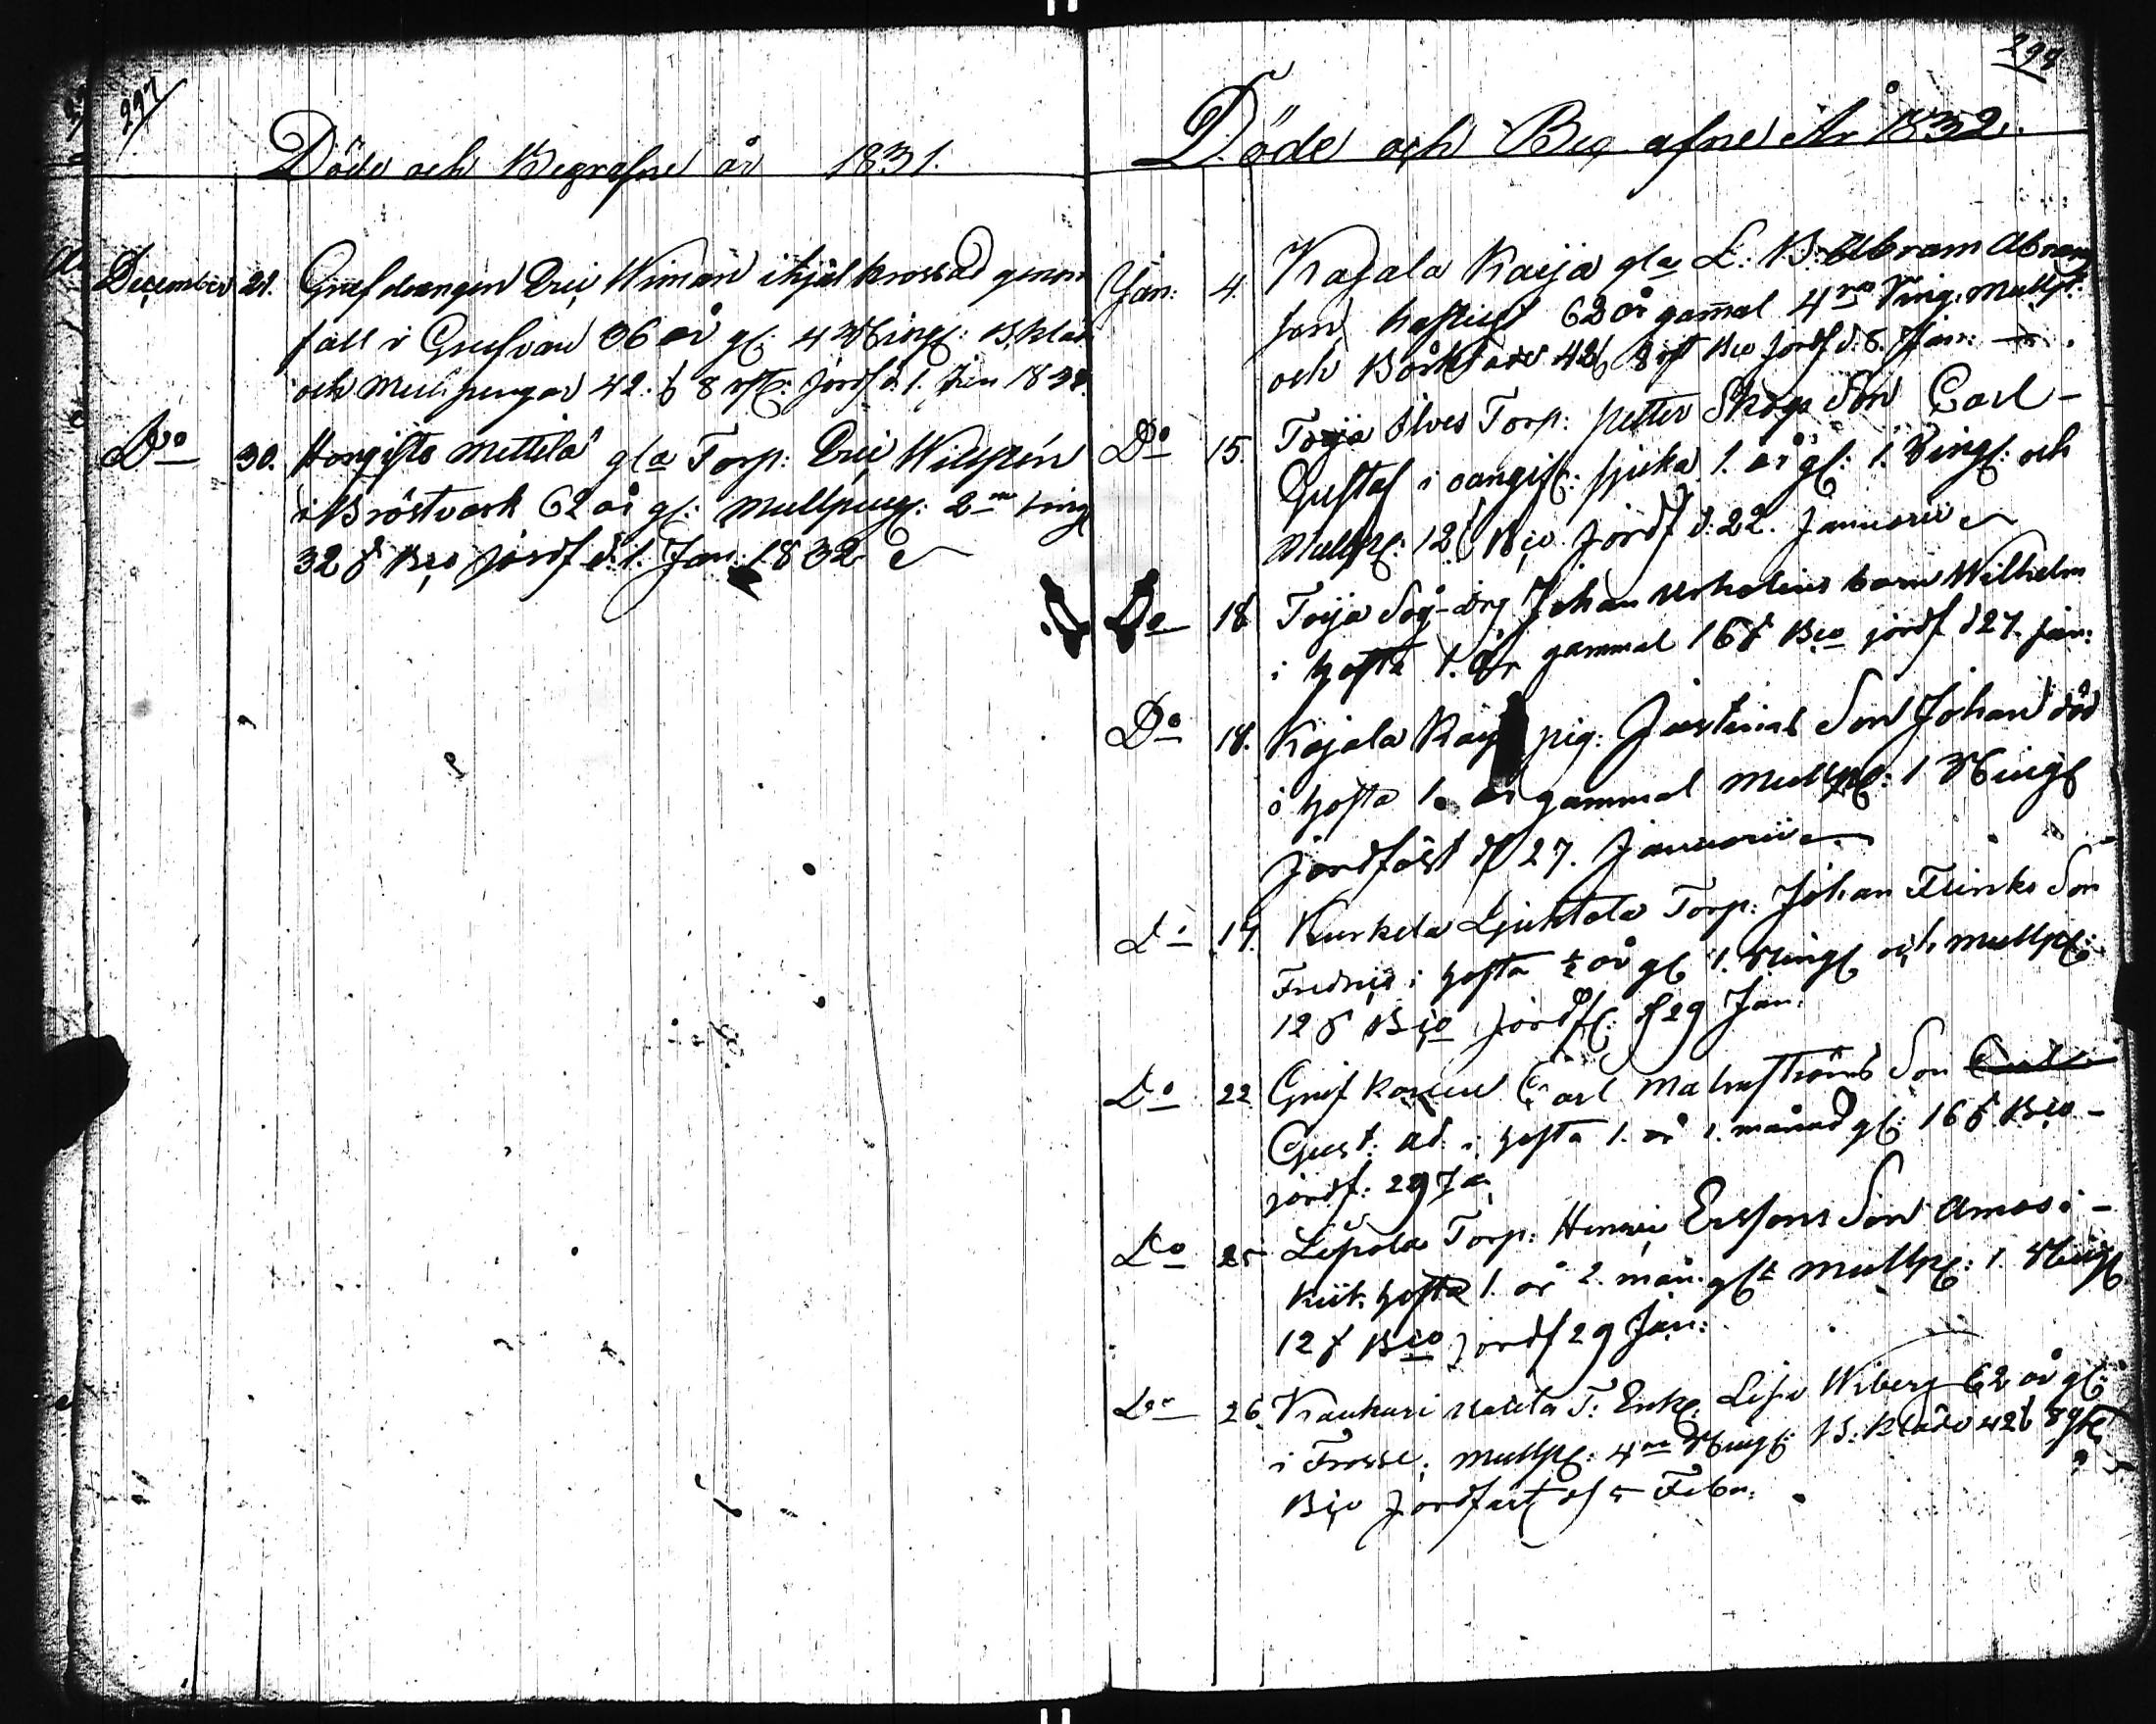 297
Döde och Begrafne år 1831.
December 21. Grufdrängen Eric Wiman ihjäl krossad genom
fall i Grufvan 36 år gl: 4 Ringn: B. kläde
och Mullpengar 42. β 8 rst: jordf d. 1. Jan 1832.
Do 30. Hongisto Mettilä gla Torp: Eric
i Bröstvärk 62 år gl: Mullpeng: 2ne ring
32 β Bco jordf d. 1. Jan. 1832
298
Döde och Beg afne År 1832.
Jan: 4. Kajala Kaija gla L: B: Abram Abram
son hastigt 62 år gammal 4ra Ring. Mullp:
och Bårkläde 42β 8 rst Bco jordf d. 8. Jan:
Do 15. Toija Torp: Petter Skogs Son Carl
Gustaf i oangif: sjuka 1. år gl: 1. Ringn: och
Mullp: 12β Bco. Jordf d. 22. Januarii
Do 18 Toija Såg-drg Johan barn Wilhelm
i hosta 1. år gammal 16β Bco jordf d 27. jan:
Do 18. Kajala pig: Justinas Son Johan död
i hosta 1. år gammal Mullp: 1 Ringn
jordfäst d 27. Januarii
Do 19. Kurkela Torp: Johan Flinks Son
Fredric i hosta ½ år gl 1. Ringn och Mullp:
12 β Bco jordf: d 29 Jan:
Do 22. Carl Malmströms Son
Gust: Ad. i hosta 1. år 1. månad gl: 16 β Bco
jordf: 29 Ja
Do 25 Torp: Henric Ersons Son Amos i
kik hosta 1. år 2. mån. gl Mullp: 1. Ringn
12 β Bco jordf 29 Jan:
Do 26. T: Enk: Lisa Wiberg 62 år gl:
i Frossa; Mullp: 4ra Ringn: B: kläde 42β 8 rst
Bco Jordfäst d 5 Febr: